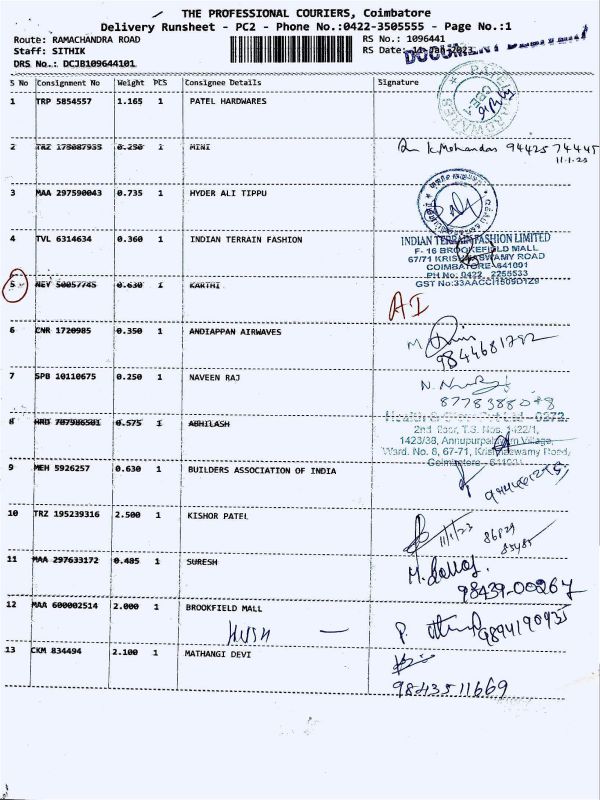 THE PROFESSIONAL COURIERS, Coimbatore
Delivery Runsheet - PC2 - Phone No.:0422-3505555 - Page No.:1
Route: RAMACHANDRA ROAD RS No.: 1096441
Staff: SITHIK RS Date: 11-Jan-2023
DRS No.: DCJB109644101
DOCUMENT
S No Consignment No Weight PCS Consignee Details Signature
1 TRP 5854557 1.165 1 PATEL HARDWARES
2 TRZ 175087935 0.250 1 MINI K Mohandas 9442574445
11.1.23
3 MAA 297590043 0.735 1 HYDER ALI TIPPU
4 TVL 6314634 0.360 1 INDIAN TERRAIN FASHION
INDIAN TERRAIN FASHION LIMITED
F- 16 BROOKEFIELD MALL
67/71 KRISHNASWAMY ROAD
COIMBATORE-641001
PH No: 0422 2255533
GST No:33AACCI1509D1Z9
5 NEY 50057745 0.630 1 KARTHI AI
6 CNR 1720985 0.350 1 ANDIAPPAN AIRWAVES
9844681792
7 SPB 10110675 0.250 1 NAVEEN RAJ
8778388048
8 HRD 787986501 0.575 1 ABHILASH
2nd floor, T.S. Nos. 1422/1,
1423/38, Annupurpalayam Village,
Ward. No. 8, 67-71, Krishnaswamy Road,
Coimbatore - 641001
9 MEH 5926257 0.630 1 BUILDERS ASSOCIATION OF INDIA
10 TRZ 195239316 2.500 1 KISHOR PATEL 11/1/23
11 MAA 297633172 0.485 1 SURESH
98439-00267
12 MAA 600002514 2.000 1 BROOKFIELD MALL
9894190455
13 CKM 834494 2.100 1 MATHANGI DEVI
98435 11669